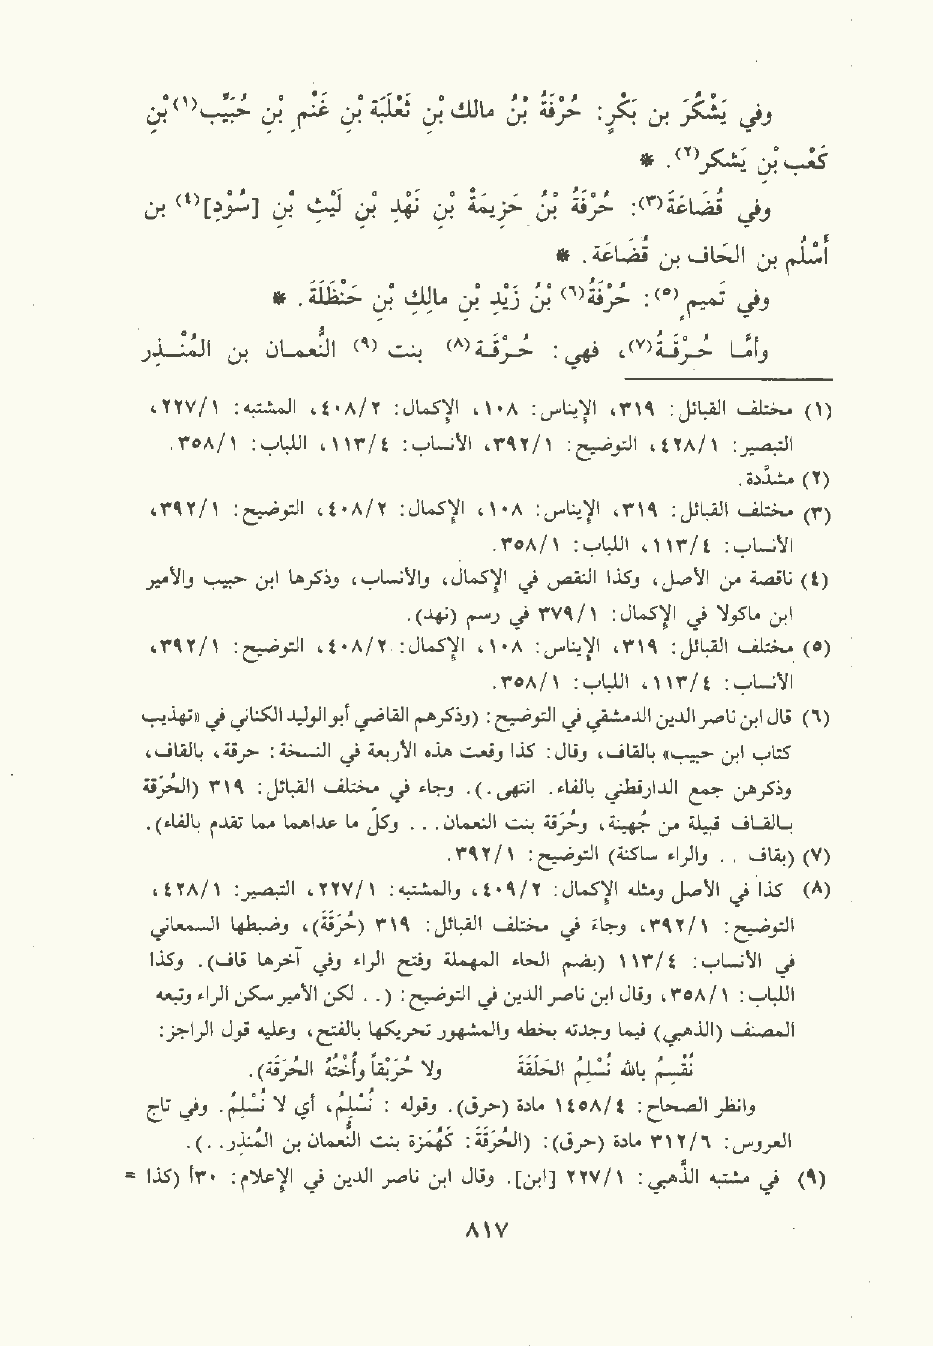 وفي يَشْكُرَ بن بَكْرٍ: حُرْفَةُ بْنُ مالك بْنِ ثَعْلَبَةَ بْنِ غَنْمِ بْنِ حُبَيِّب(١) بْنِ
كَعْب بْنِ يَشكر(٢). *
وفي قُضَاعَة(٣): حُرْفَةُ بْنُ حَزِيمَةَ بْنِ نَهْدِ بْنِ لَيْثِ بْنِ [سُوْدِ](٤) بن
أَسْلُم بن الحَاف بن قُضَاعَة. *
وفي تَميمٍ(٥): حُرْفَةُ(٦) بْنُ زَيْدِ بْنِ مالِكِ بْنِ حَنْظَلَةَ. *
وأمَّا حُـرْقَـةُ(٧)، فهي: حُـرْقَـة(٨) بنت (٩) النُّعمـان بن المُنْـذِر
(١) مختلف القبائل: ٣١٩، الإيناس: ١٠٨، الإكمال: ٤٠٨/٢، المشتبه: ٢٢٧/١،
التبصير: ٤٢٨/١، التوضيح: ٣٩٢/١، الأنساب: ١١٣/٤، اللباب: ٣٥٨/١.
(٢) مشدَّدة.
(٣) مختلف القبائل: ٣١٩، الإيناس: ١٠٨، الإكمال: ٤٠٨/٢، التوضيح: ٣٩٢/١،
الأنساب: ١١٣/٤، اللباب: ٣٥٨/١.
(٤) ناقصة من الأصل، وكذا النقص في الإكمال، والأنساب، وذكرها ابن حبيب والأمير
ابن ماكولا في الإكمال: ٣٧٩/١ في رسم (نهد).
(٥) مختلف القبائل: ٣١٩، الإيناس: ١٠٨، الإكمال: ٤٠٨/٢، التوضيح: ٣٩٢/١،
الأنساب: ١١٣/٤، اللباب: ٣٥٨/١.
(٦) قال ابن ناصر الدين الدمشقي في التوضيح: (وذكرهم القاضي أبو الوليد الكناني في «تهذيب
كتاب ابن حبيب» بالقاف، وقال: كذا وقعت هذه الأربعة في النسخة: حرقة، بالقاف،
وذكرهن جمع الدارقطني بالفاء. انتهى.). وجاء في مختلف القبائل: ٣١٩ (الحُرَقة
بالقـاف قبيلة من جُهينة، وحُرَقة بنت النعمان... وكلّ ما عداهما كما تقدم بالفاء).
(٧) (بقاف .. والراء ساكنة) التوضيح: ٣٩٢/١.
(٨) كذا في الأصل ومثله الإكمال: ٤٠٩/٢، والمشتبه: ٢٢٧/١، التبصير: ٤٢٨/١،
التوضيح: ٣٩٢/١، وجاءَ في مختلف القبائل: ٣١٩ (حُرَقَة)، وضبطها السمعاني
في الأنساب: ١١٣/٤ (بضم الحاء المهملة وفتح الراء وفي آخرها قاف). وكذا
اللباب: ٣٥٨/١، وقال ابن ناصر الدين في التوضيح: (.. لكن الأمير سكن الراء وتبعه
المصنف (الذهبي) فيما وجدته بخطه والمشهور تحريكها بالفتح، وعليه قول الراجز:
نُقْسِمُ بالله نُسْلِمُ الحَلَقَةَ   ولا حُرَيْقاً وأُخْتَهُ الحُرَقَة).
وانظر الصحاح: ١٤٥٨/٤ مادة (حرق). وقوله: نُسْلِمُ، أي لا نُسْلِمُ. وفي تاج
العروس: ٣١٢/٦ مادة (حرق): (الحُرَقَة: كهُمَزة بنت النُّعمان بن المُنذِر..).
(٩) في مشتبه الذَّهبي: ٢٢٧/١ [ابن]. وقال ابن ناصر الدين في الإعلام: ٣٠أ (كذا =
٨١٧